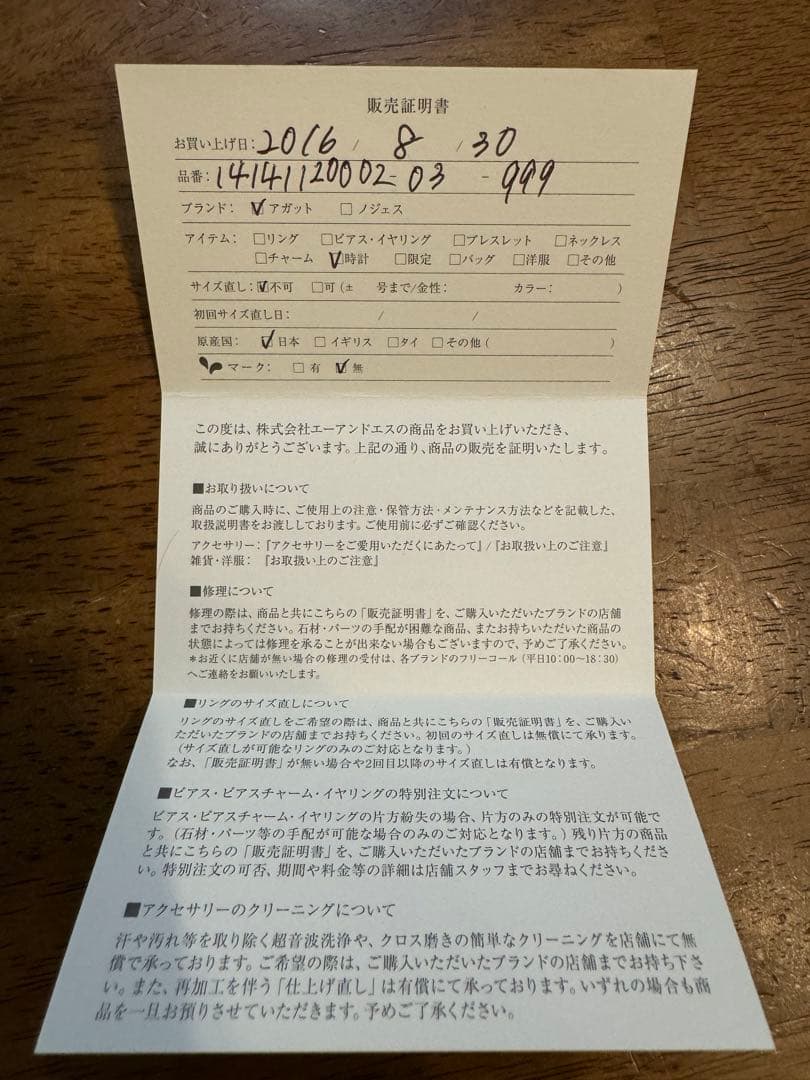 販売証明書
お買い上げ日：2016 / 8 / 30
品番：14141120002-03 -999
ブランド： ☑アガット □ノジェス
アイテム： □リング □ピアス・イヤリング □ブレスレット □ネックレス
□チャーム ☑時計 □限定 □バッグ □洋服 □その他
サイズ直し：☑不可 □可（± 号まで/金性： カラー： ）
初回サイズ直し日： / /
原産国： ☑日本 □イギリス □タイ □その他（ ）
マーク： □有 ☑無
この度は、株式会社エーアンドエスの商品をお買い上げいただき、
誠にありがとうございます。上記の通り、商品の販売を証明いたします。
■お取り扱いについて
商品のご購入時に、ご使用上の注意・保管方法・メンテナンス方法などを記載した、
取扱説明書をお渡ししております。ご使用前に必ずご確認ください。
アクセサリー：『アクセサリーをご愛用いただくにあたって』/『お取扱い上のご注意』
雑貨・洋服： 『お取扱い上のご注意』
■修理について
修理の際は、商品と共にこちらの「販売証明書」を、ご購入いただいたブランドの店舗
までお持ちください。石材・パーツの手配が困難な商品、またお持ちいただいた商品の
状態によっては修理を承ることが出来ない場合もございますので、予めご了承ください。
＊お近くに店舗が無い場合の修理の受付は、各ブランドのフリーコール（平日10：00〜18：30）
へご連絡をお願いいたします。
■リングのサイズ直しについて
リングのサイズ直しをご希望の際は、商品と共にこちらの「販売証明書」を、ご購入い
ただいたブランドの店舗までお持ちください。初回のサイズ直しは無償にて承ります。
（サイズ直しが可能なリングのみのご対応となります。）
なお、「販売証明書」が無い場合や2回目以降のサイズ直しは有償となります。
■ピアス・ピアスチャーム・イヤリングの特別注文について
ピアス・ピアスチャーム・イヤリングの片方紛失の場合、片方のみの特別注文が可能で
す。（石材・パーツ等の手配が可能な場合のみのご対応となります。）残り片方の商品
と共にこちらの「販売証明書」を、ご購入いただいたブランドの店舗までお持ちくださ
い。特別注文の可否、期間や料金等の詳細は店舗スタッフまでお尋ねください。
■アクセサリーのクリーニングについて
汗や汚れ等を取り除く超音波洗浄や、クロス磨きの簡単なクリーニングを店舗にて無
償で承っております。ご希望の際は、ご購入いただいたブランドの店舗までお持ち下さ
い。また、再加工を伴う「仕上げ直し」は有償にて承っております。いずれの場合も商
品を一旦お預りさせていただきます。予めご了承ください。